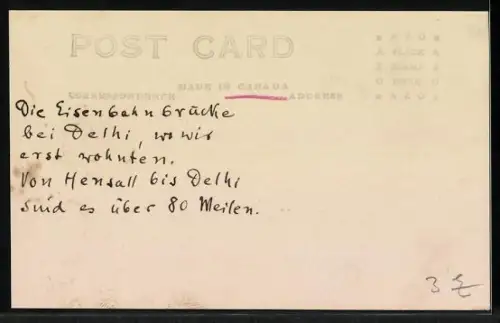 POST CARD
MADE IN CANADA
CORRESPONDENCE ADDRESS
Die Eisenbahnbrücke
bei Delhi, wo wir
erst wohnten.
Von Hensall bis Delhi
sind es über 80 Meilen.
3